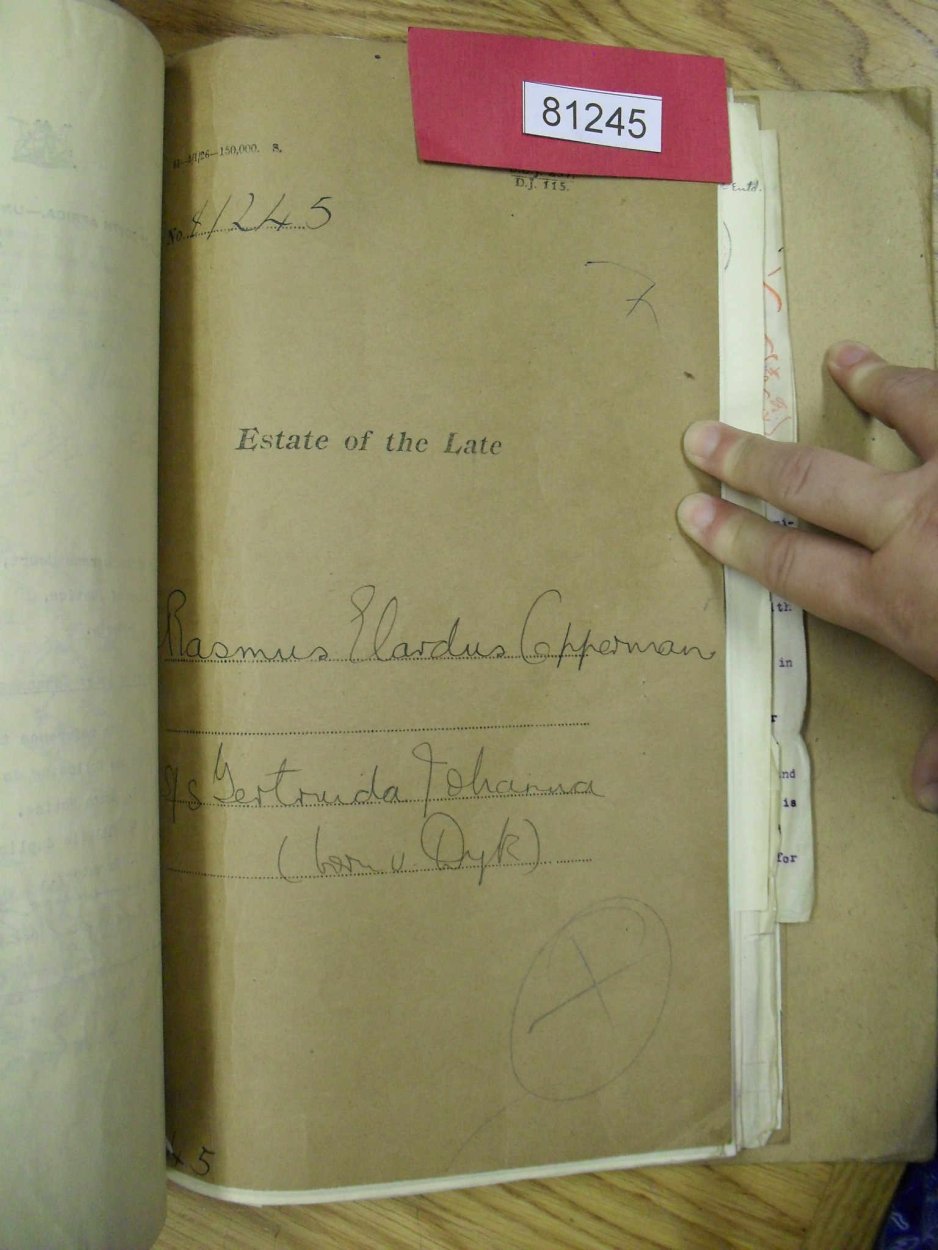 81245
/26—150,000. S.
D.J. 115.
Entd.
No. 81245
Estate of the Late
Rasmus Elardus Opperman
s/s Gertruida Johanna
(born v. Dyk)
th
in
r
nd
is
for
45